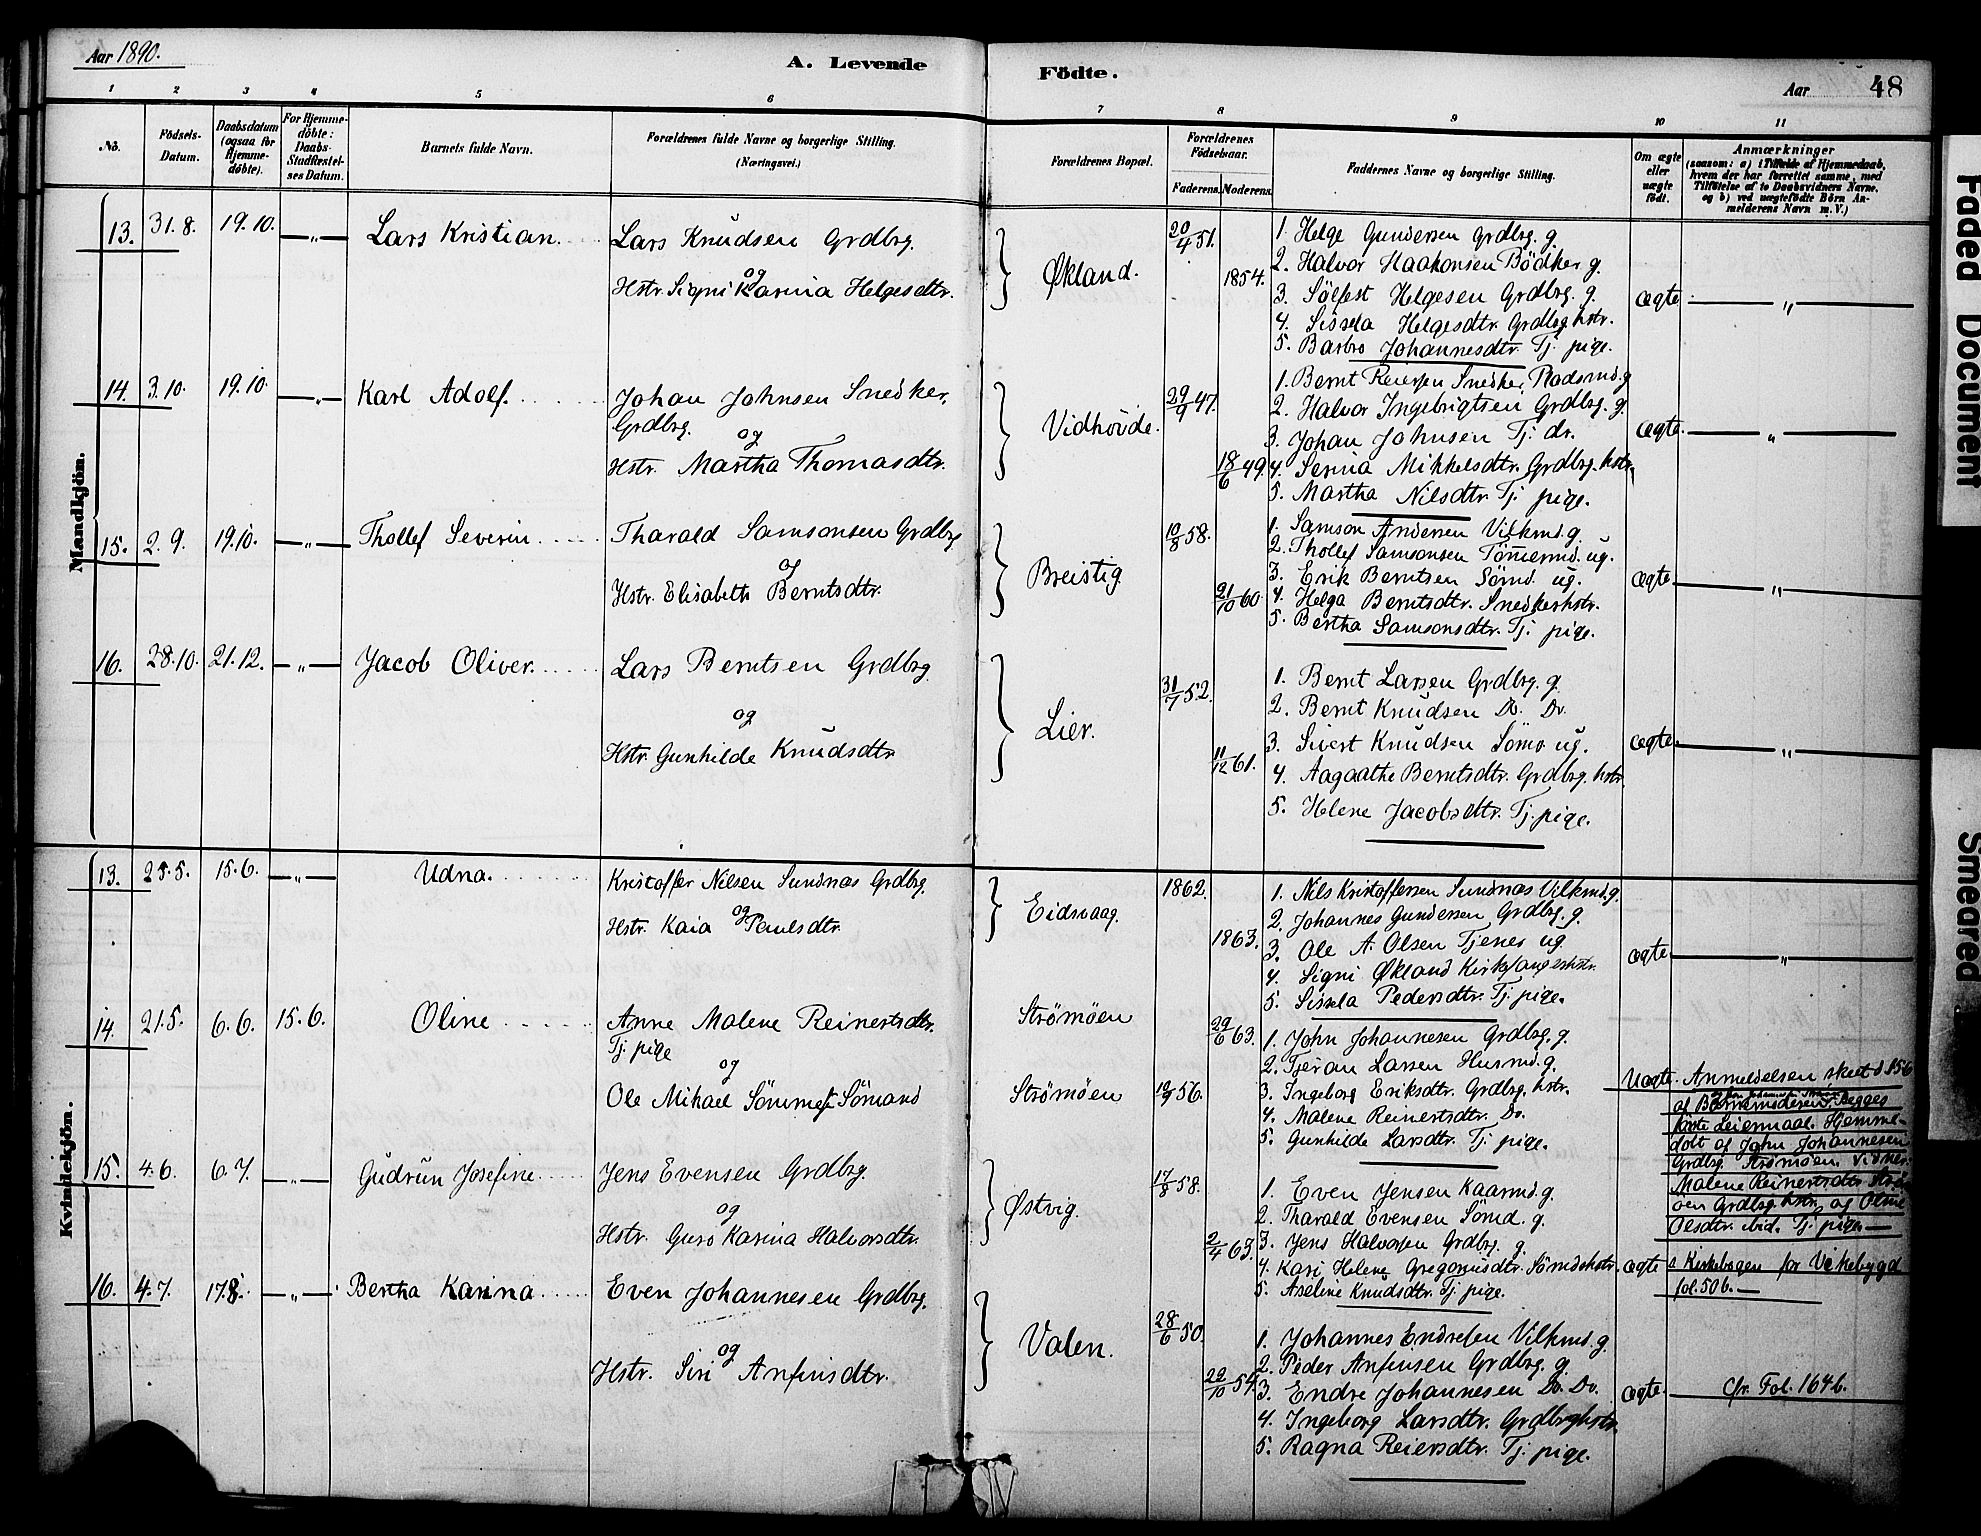 Aar 1890.
A. Levende Födte.
Aar 48
1 2 3 4 5 6 7 8 9 10 11
No.
Födsels-Datum.
Daabsdatum (ogsaa for Hjemme-döbte).
For Hjemme-döbte: Daabs-Stadfæstel-ses Datum.
Barnets fulde Navn.
Forældrenes fulde Navne og borgerlige Stilling. (Næringsvei.)
Forældrenes Bopæl.
Forældrenes Födselsaar.
Faderens. Moderens.
Faddernes Navne og borgerlige Stilling.
Om ægte eller uægte födt.
Anmærkninger
(saasom: a) i Tilfælde af Hjemmedaab,
hvem der har forrettet samme, med
Tilföielse af to Daabsvidners Navne.
og b) ved uægtefödte Börn An-
melderens Navn m. V.)
Mandkjön.
13. 31.8. 19.10. —"— Lars Kristian. Lars Knudsen Grdbrg.
og
Hstr. Signi Karina Helgesdtr.
Økland. 20/4 51. 1854.
1. Helge Gundersen Grdbrg. g.
2. Halvor Haakonsen Bödker g.
3. Sölfest Helgesen Grdbrg. g.
4. Sissela Helgesdtr. Grdbrg hstr.
5. Barbro Johannesdtr. Tj. pige.
ægte —"—
14. 3.10. 19.10. —"— Karl Adolf. Johan Johnsen Snedker,
Grdbrg.
og
Hstr. Martha Thomasdtr.
Vidhövde. 29/9 47. 18/6 49.
1. Bernt Reiersen Snedker, Pladsmd. g
2. Halvor Ingebrigtsen Grdbrg. g.
3. Johan Johnsen Tj. dr.
4. Serina Mikkelsdtr. Grdbrg. hstr.
5. Martha Nilsdtr. Tj. pige.
ægte. —"—
15. 2.9. 19.10. —"— Thollef Severin Tharald Samsonsen Grdbrg
og
Hstr. Elisabeth Berntsdtr.
Breistig 10/8 58. 21/10 60.
1. Samson Andersen Vilkmd. g.
2. Thollef Samsonsen Tömmermd. ug.
3. Erik Berntsen Sömd. ug.
4. Helga Berntsdtr. Snedkerhstr.
5. Bertha Samsonsdtr. Tj. pige.
ægte —"—
16. 28.10. 21.12. —"— Jacob Oliver. Lars Berntsen Grdbrg.
og
Hstr. Gunhilde Knudsdtr.
Lier. 31/7 52. 11/12 61.
1. Bernt Larsen Grdbrg. g.
2. Bernt Knudsen Do. Do.
3. Sivert Knudsen Sömd ug.
4. Aagaathe Berntsdtr. Grdbrg. hstr.
5. Helene Jacobsdtr. Tj. pige.
ægte. —"—
Kvindekjön.
13. 25.5. 15.6. —"— Udna. Kristoffer Nilsen Sundnæs Grdbrg.
og
Hstr. Kaia Paulsdtr.
Eidsvaag. 1862. 1863.
1. Nils Kristoffersen Sundnæs Vilkmd. g.
2. Johannes Gundersen Grdbrg. g.
3. Ole A. Olsen Tjener ug.
4. Signi Økland Kirkesangerhstr.
5. Sissela Pedersdtr. Tj. pige.
ægte —"—
14. 21.5. 6.6. 15.6. Oline Anne Malene Reinertsdtr.
Tj. pige
og
Ole Mikael Sömand
Strömöen 29/6 63.
Strömöen 10/9 56.
1. John Johannesen Grdbrg. g.
2. Tjeran Larsen Husmd. g.
3. Ingeborg Eriksdtr. Grdbrg. hstr.
4. Malene Reinertsdtr. Do.
5. Gunhilde Larsdtr. Tj. pige.
Uægte. Anmeldelsen skeet
af Barnemoderen. Begges
förste Leiermaal. Hjemme-
döbt af John Johannesen
Grdbrg. Strömöen. Vidner:
Malene Reinertsdtr. Ström-
öen Grdbrg. hstr. og Oline
Olsdtr. ibid. Tj. pige.—
15. 4.6. 6.7. —"— Gudrun Josefine Jens Evensen Grdbrg.
og
Hstr. Guro Karina Halvorsdtr.
Østvig. 17/8 58. 2/4 63.
1. Even Jensen Kaarmd. g.
2. Tharald Evensen Sömd. g.
3. Jens Halvorsen Grdbrg. g.
4. Kari Helene Gregoriusdtr. Sömdshstr.
5. Aseline Knudsdtr. Tj. pige.
ægte Kirkebogen for Vikebygd
fol. 50 b.—
16. 4.7. 17.8. —"— Bertha Karina Even Johannesen Grdbrg.
og
Hstr. Siri Anfinsdtr.
Valen. 28/6 50. 29/10 54.
1. Johannes Endresen Vilkmd. g.
2. Peder Anfinsen Grdbrg. g.
3. Endre Johannesen Do. Do.
4. Ingeborg Larsdtr. Grdbrghstr.
5. Ragna Reiersdtr. Tj. pige.
ægte. Cfr. Fol. 164 b.
Faded Document
Smeared